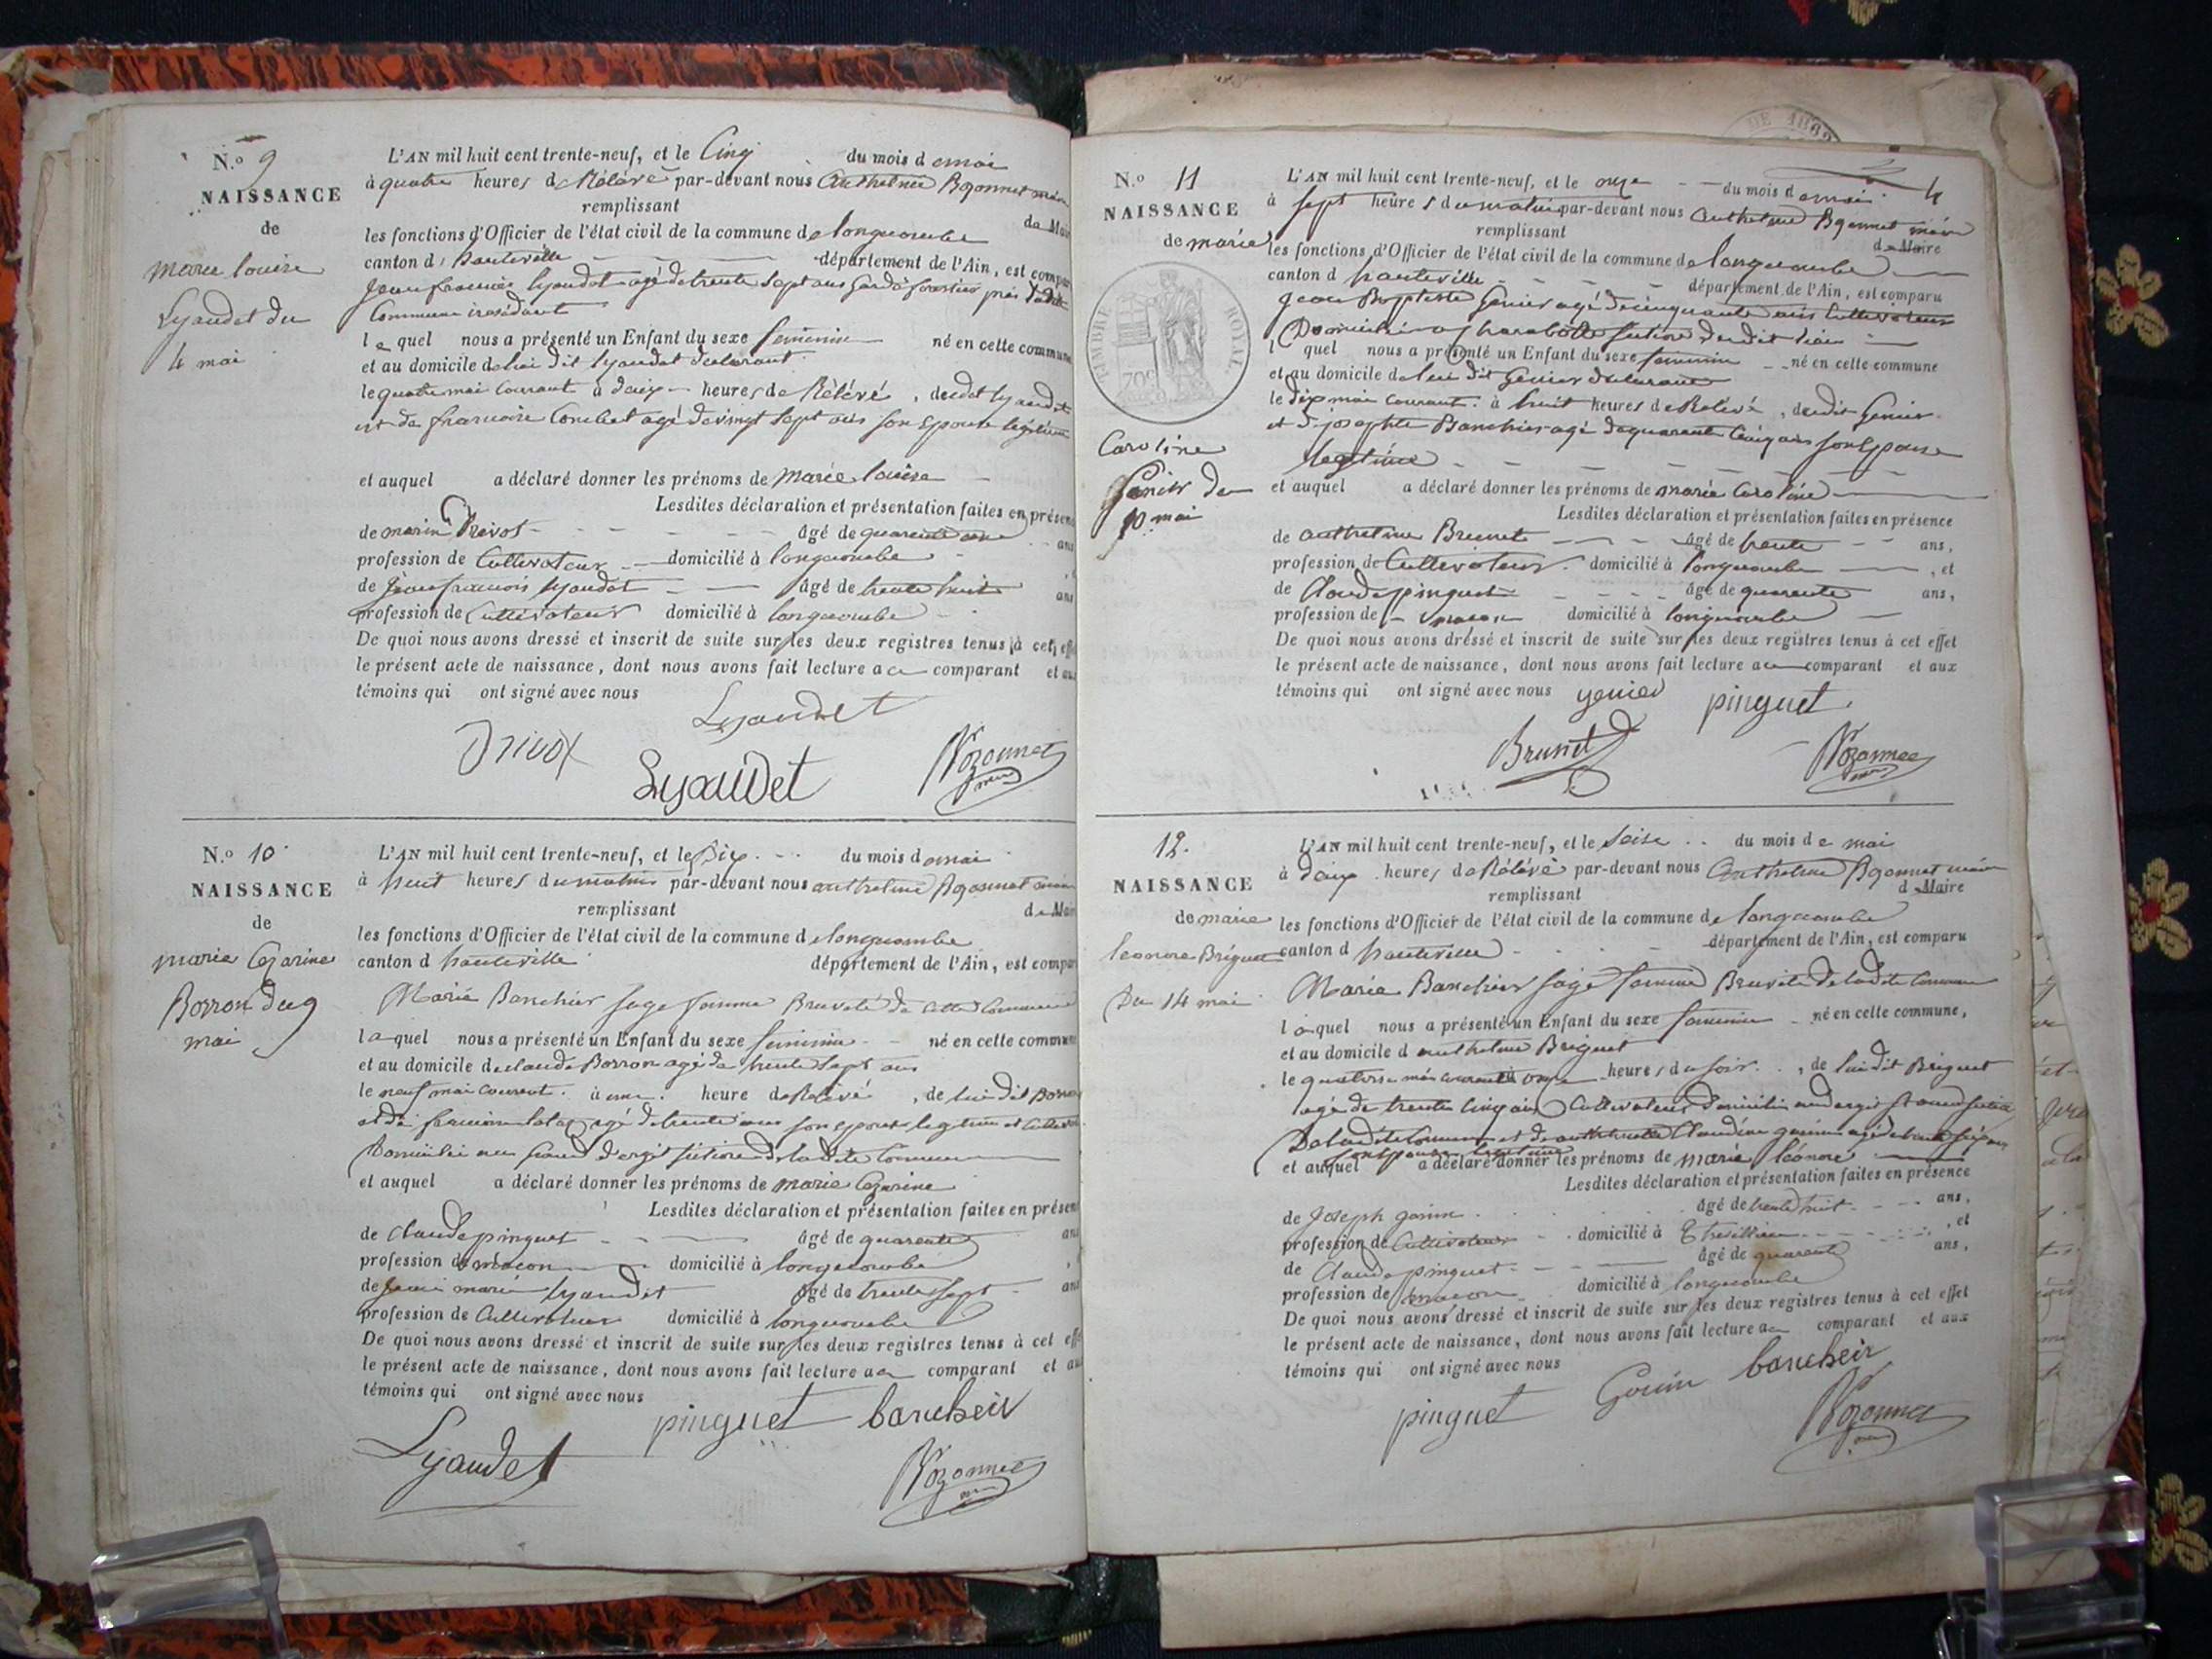 N.o 9
NAISSANCE
de
marie louise
Lyaudet du
4 mai
L'AN mil huit cent trente-neuf, et le Cinq du mois de mai
à quatre heures de Rélévé par-devant nous Anthelme Rozonnet maire
remplissant
les fonctions d'Officier de l'état civil de la commune de longecombe
canton d'hauteville département de l'Ain, est
Jean francois lyaudet agé de trente Sept ans Garde forestier
Commune
lequel nous a présenté un Enfant du sexe feminin né en cette
et au domicile de lui dit lyaudet déclarant
le quatre mai Courant à heures de Rélévé, dudit lyaudet
et de francoise agé de vingt Sept ans son Epouse légitime
et auquel a déclaré donner les prénoms de Marie louise
Lesdites déclaration et présentation faites en
de marin âgé de quarente ans
profession de Cultivateur domicilié à longecombe
de Jean francois lyaudet âgé de trente huit ans
profession de Cultivateur domicilié à longecombe
De quoi nous avons dressé et inscrit de suite sur les deux registres tenus à cet
le présent acte de naissance, dont nous avons fait lecture au comparant et
témoins qui ont signé avec nous
Lyaudet
Lyaudet
Rozonnet
N.o 10
NAISSANCE
de
marie Cezarine
Borron du 9
mai
L'AN mil huit cent trente-neuf, et le Dix du mois de mai
à heures du matin par-devant nous anthelme Rozonnet maire
remplissant
les fonctions d'Officier de l'état civil de la commune de longecombe
canton d'hauteville département de l'Ain, est
Marie Banchier sage femme Breveté de cette Commune
laquel nous a présenté un Enfant du sexe feminin né en cette
et au domicile de claude Borron agé de trente Sept ans
le neuf mai Courant à une heure de Rélévé, de lui dit Borron
et de francoise agé de trente ans son epouse legitime et
Domicilié au d'argit section de ladite Commune
et auquel a déclaré donner les prénoms de marie Cezarine
Lesdites déclaration et présentation faites en
de claude pinguet âgé de quarente
profession de macon domicilié à longecombe
de Jean marie lyaudet âgé de trente Sept
profession de Cultivateur domicilié à longecombe
De quoi nous avons dressé et inscrit de suite sur les deux registres tenus à cet
le présent acte de naissance, dont nous avons fait lecture au comparant et
témoins qui ont signé avec nous
pinguet bancheir
Lyaudet
Rozonnet
4
N.o 11
NAISSANCE
de marie
TIMBRE ROYAL
70c
Caroline
Genier du
10 mai
L'AN mil huit cent trente-neuf, et le onze du mois de mai
à sept heures du matin par-devant nous Anthelme Rozonnet maire
remplissant de Maire
les fonctions d'Officier de l'état civil de la commune de longecombe
canton d'hauteville département de l'Ain, est comparu
Jean Baptiste Genier agé de cinquante ans Cultivateur
Domicilié a section dudit lieu
lequel nous a présenté un Enfant du sexe feminin né en cette commune
et au domicile de lui dit Genier déclarant
le dix mai Courant à huit heures de Rélévé, dudit Genier
et de josephte Banchier agé de quarente Cinq ans son Epouse
legitime
et auquel a déclaré donner les prénoms de marie Caroline
Lesdites déclaration et présentation faites en présence
de anthelme Brunet âgé de trente ans,
profession de Cultivateur domicilié à longecombe, et
de Claude pinguet âgé de quarente ans,
profession de macon domicilié à longecombe
De quoi nous avons dressé et inscrit de suite sur les deux registres tenus à cet effet
le présent acte de naissance, dont nous avons fait lecture au comparant et aux
témoins qui ont signé avec nous genier pinguet
Brunet Rozonnet
12.
NAISSANCE
de marie
leonore Briguet
Du 14 mai
L'AN mil huit cent trente-neuf, et le Seise du mois de mai
à heures de Rélévé par-devant nous Anthelme Rozonnet maire
remplissant de Maire
les fonctions d'Officier de l'état civil de la commune de longecombe
canton d'hauteville département de l'Ain, est comparu
Marie Banchier sage femme Brevete de ladite Commune
laquel nous a présenté un Enfant du sexe feminin né en cette commune,
et au domicile d'anthelme Briguet
le quatorse mai courant à onze heures du soir, de lui dit Briguet
agé de trente Cinq ans Cultivateur Domicilié section
De ladite Commune et de Claudine
son epouse legitime
et auquel a déclaré donner les prénoms de marie léonore
Lesdites déclaration et présentation faites en présence
de Joseph gouin âgé de trente huit ans,
profession de Cultivateur domicilié à, et
de Claude pinguet âgé de quarente ans,
profession de macon domicilié à longecombe
De quoi nous avons dressé et inscrit de suite sur les deux registres tenus à cet effet
le présent acte de naissance, dont nous avons fait lecture au comparant et aux
témoins qui ont signé avec nous
pinguet Gouin bancheir
Rozonnet